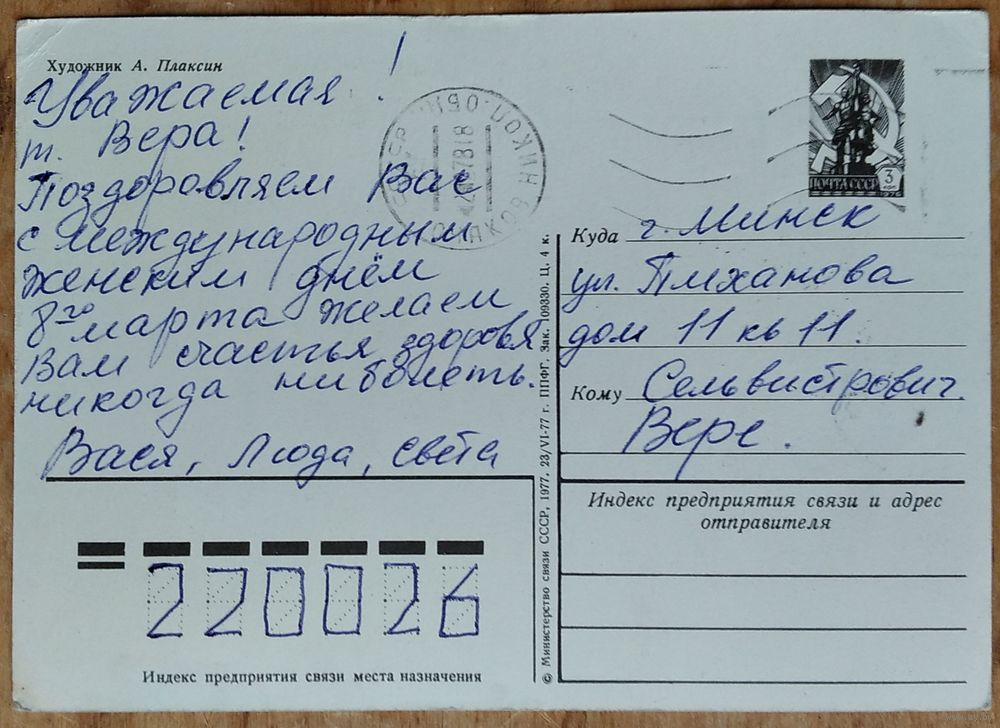 Художник А. Плаксин
Уважаемая !
т. Вера!
Поздоровляем Вас
с международным
женским днём
8го марта желаем
Вам счастья здоровья
никогда ни болеть.
Вася, Люда, Света
220026
Индекс предприятия связи места назначения
© Министерство связи СССР, 1977. 23/VI-77 г. ППФГ. Зак. 109330. Ц. 4 к.
ПОЧТА СССР 3 коп
Куда г. Минск
ул. Плеханова
дом 11 кв 11.
Кому Сельвистрович.
Вере.
Индекс предприятия связи и адрес
отправителя